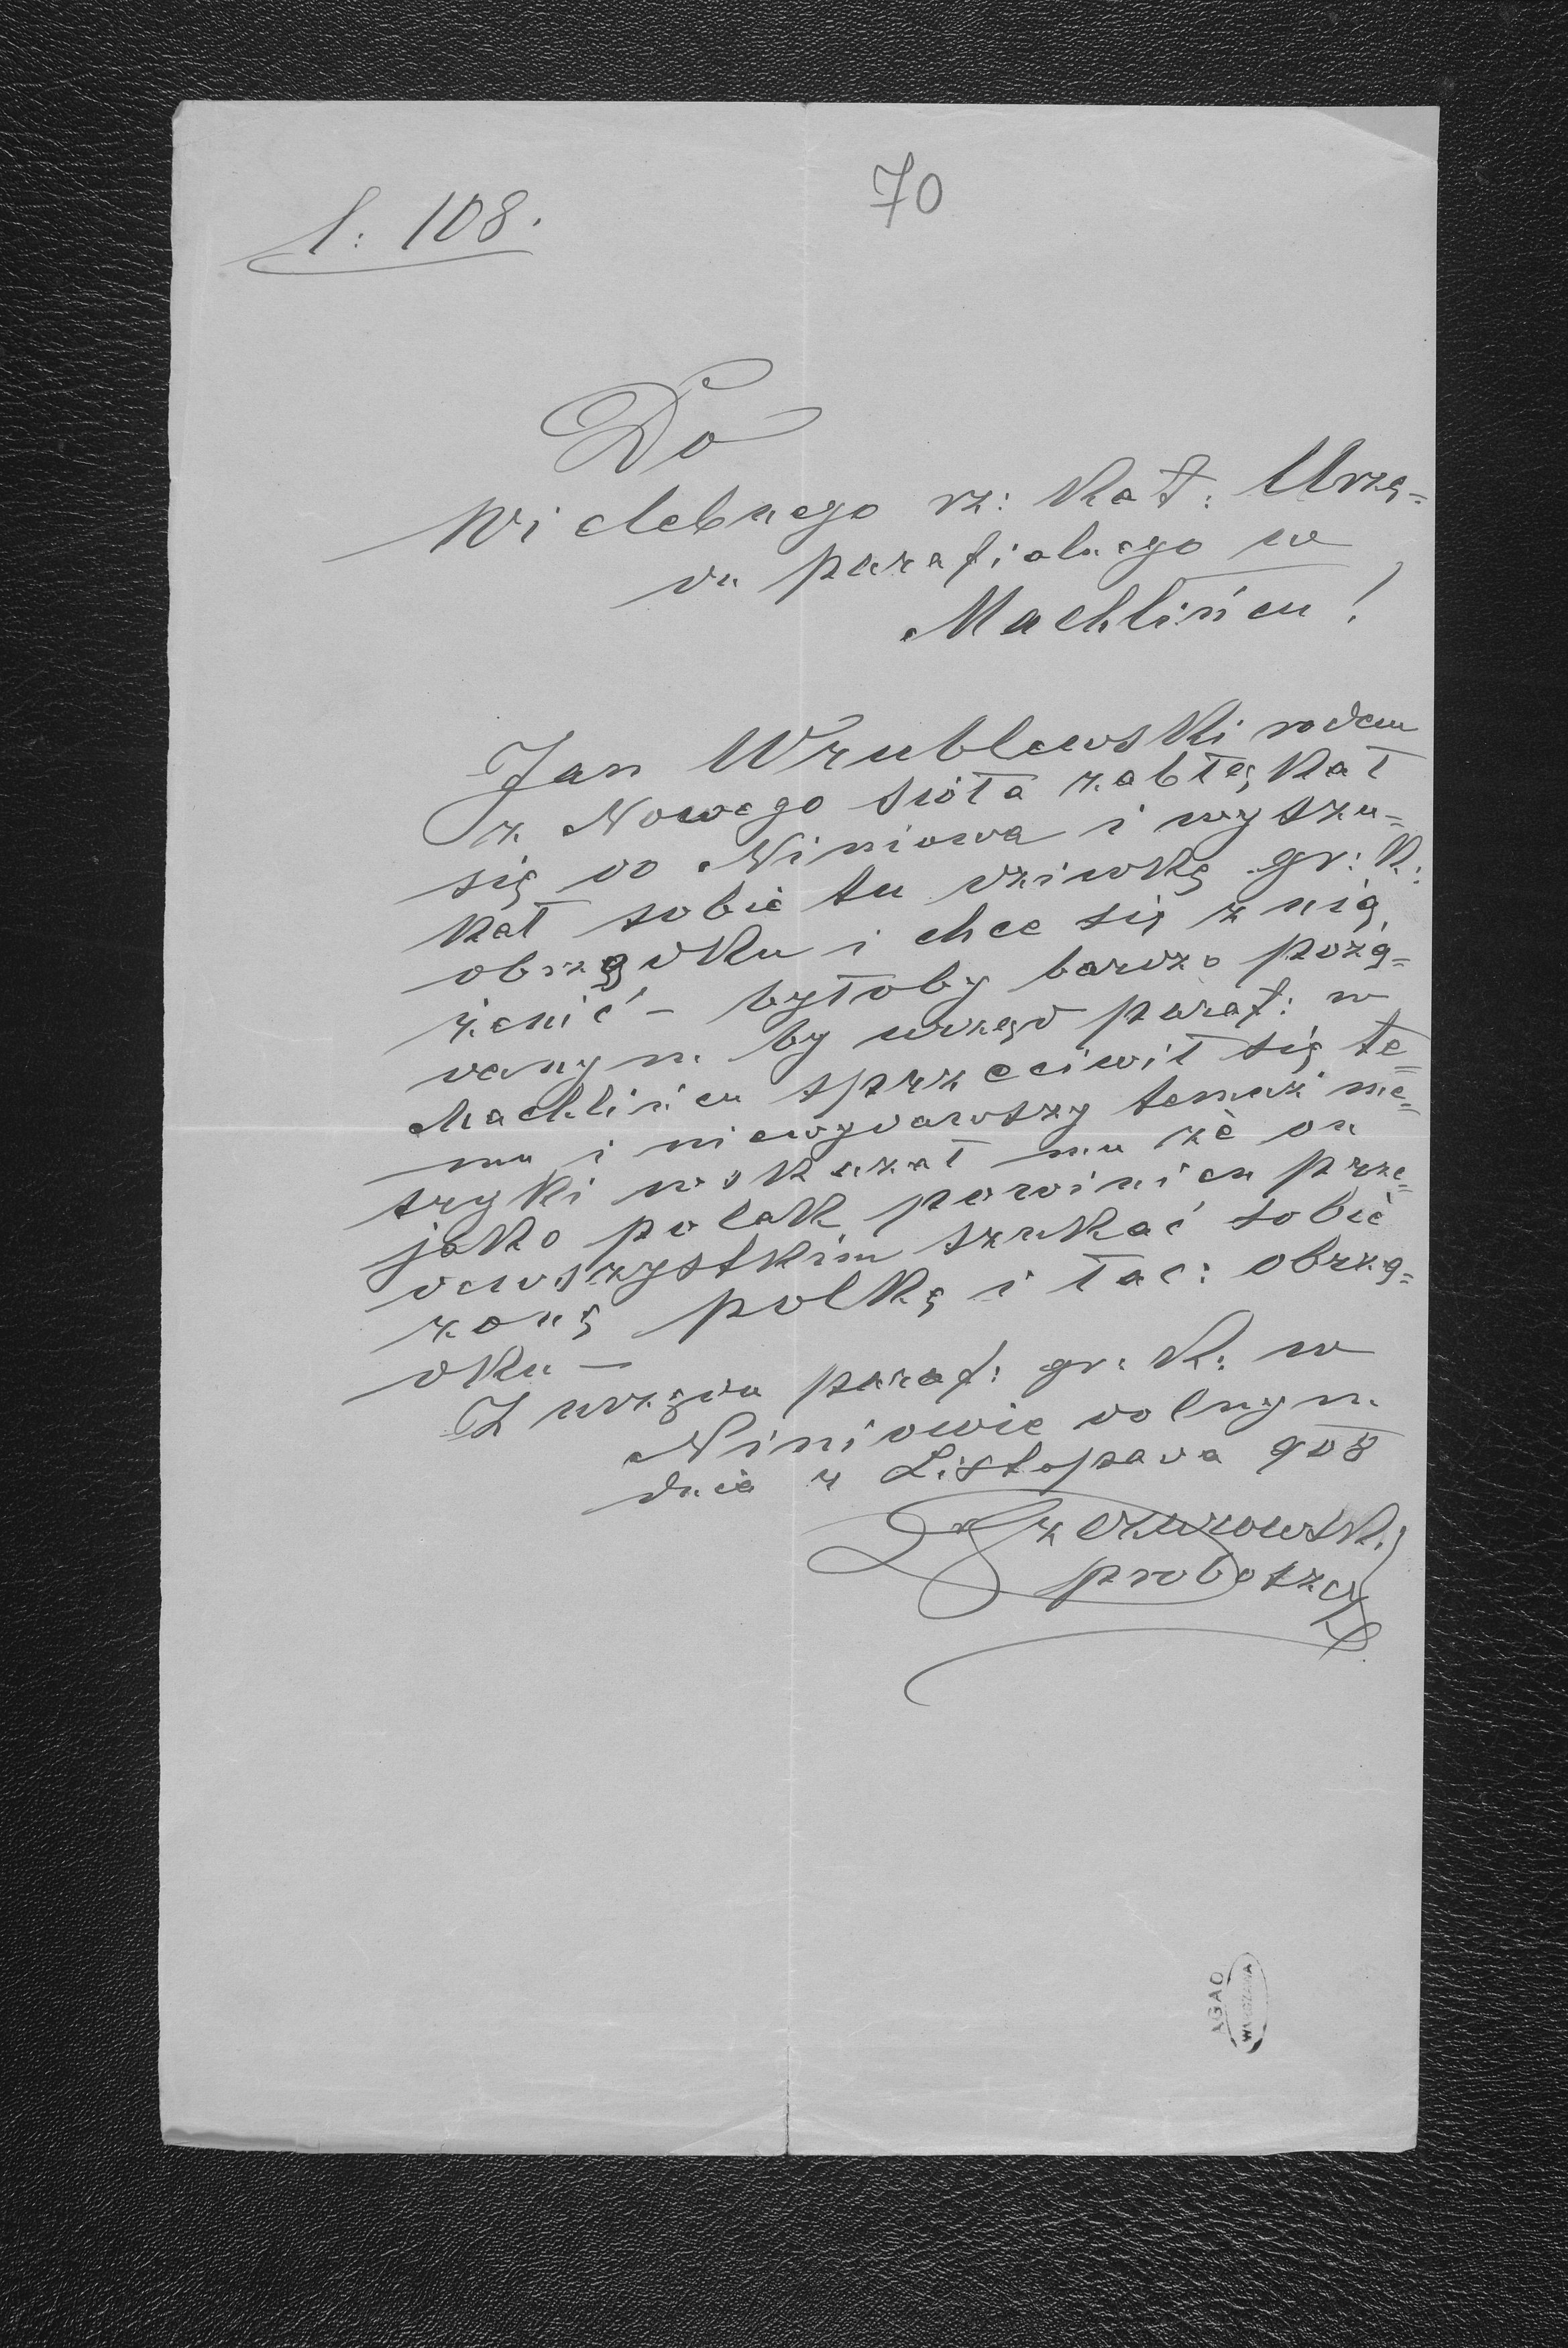 l: 108.
70
Do
Wielebnego rz: kat: Urzę=
du parafialnego w
Machlińcu!
Jan Wrublewski rodem
z Nowego sioła zabłąkał
się do Niniowa i wyszu=
kał sobie tu dziwkę gr: k:
obrządku i chce się z nią
żenić – byłoby bardzo pożą=
danym by urząd paraf: w
Machlińcu sprzeciwił się te=
mu i niewydawszy temuż me=
tryki wskazał mu że on
jako polak powinien prze=
dewszystkim szukać sobie
żonę polkę i łac: obrzą=
dku –
Z urzędu paraf: gr: k: w
Niniowie dolnym
dnia 4 Listopada 908
proboszcz
AGAD
WARSZAWA